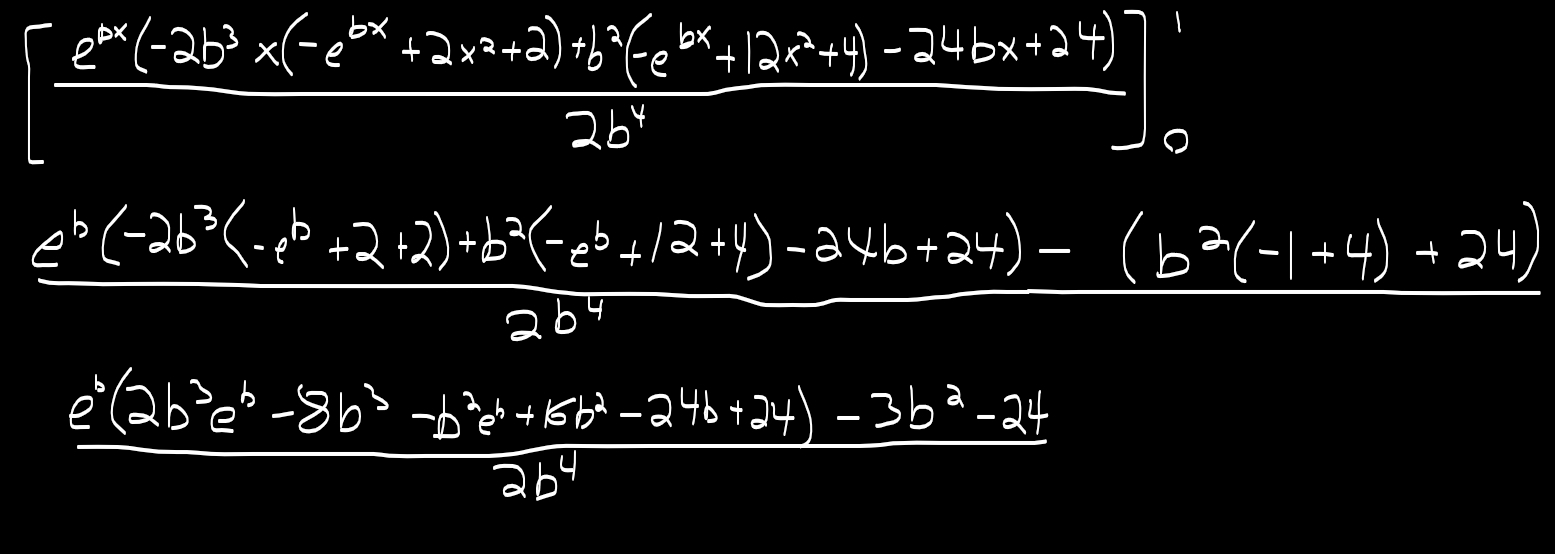 [ \frac{e^{bx}(-2b^3 x(-e^{bx} + 2x^2 + 2) + b^2(-e^{bx} + 12x^2 + 4) - 24bx + 24)}{2b^4} ]_0^1
\frac{e^b(-2b^3(-e^b + 2 + 2) + b^2(-e^b + 12 + 4) - 24b + 24) - (b^2(-1 + 4) + 24)}{2b^4}
\frac{e^b(2b^3e^b - 8b^3 - b^2e^b + 16b^2 - 24b + 24) - 3b^2 - 24}{2b^4}